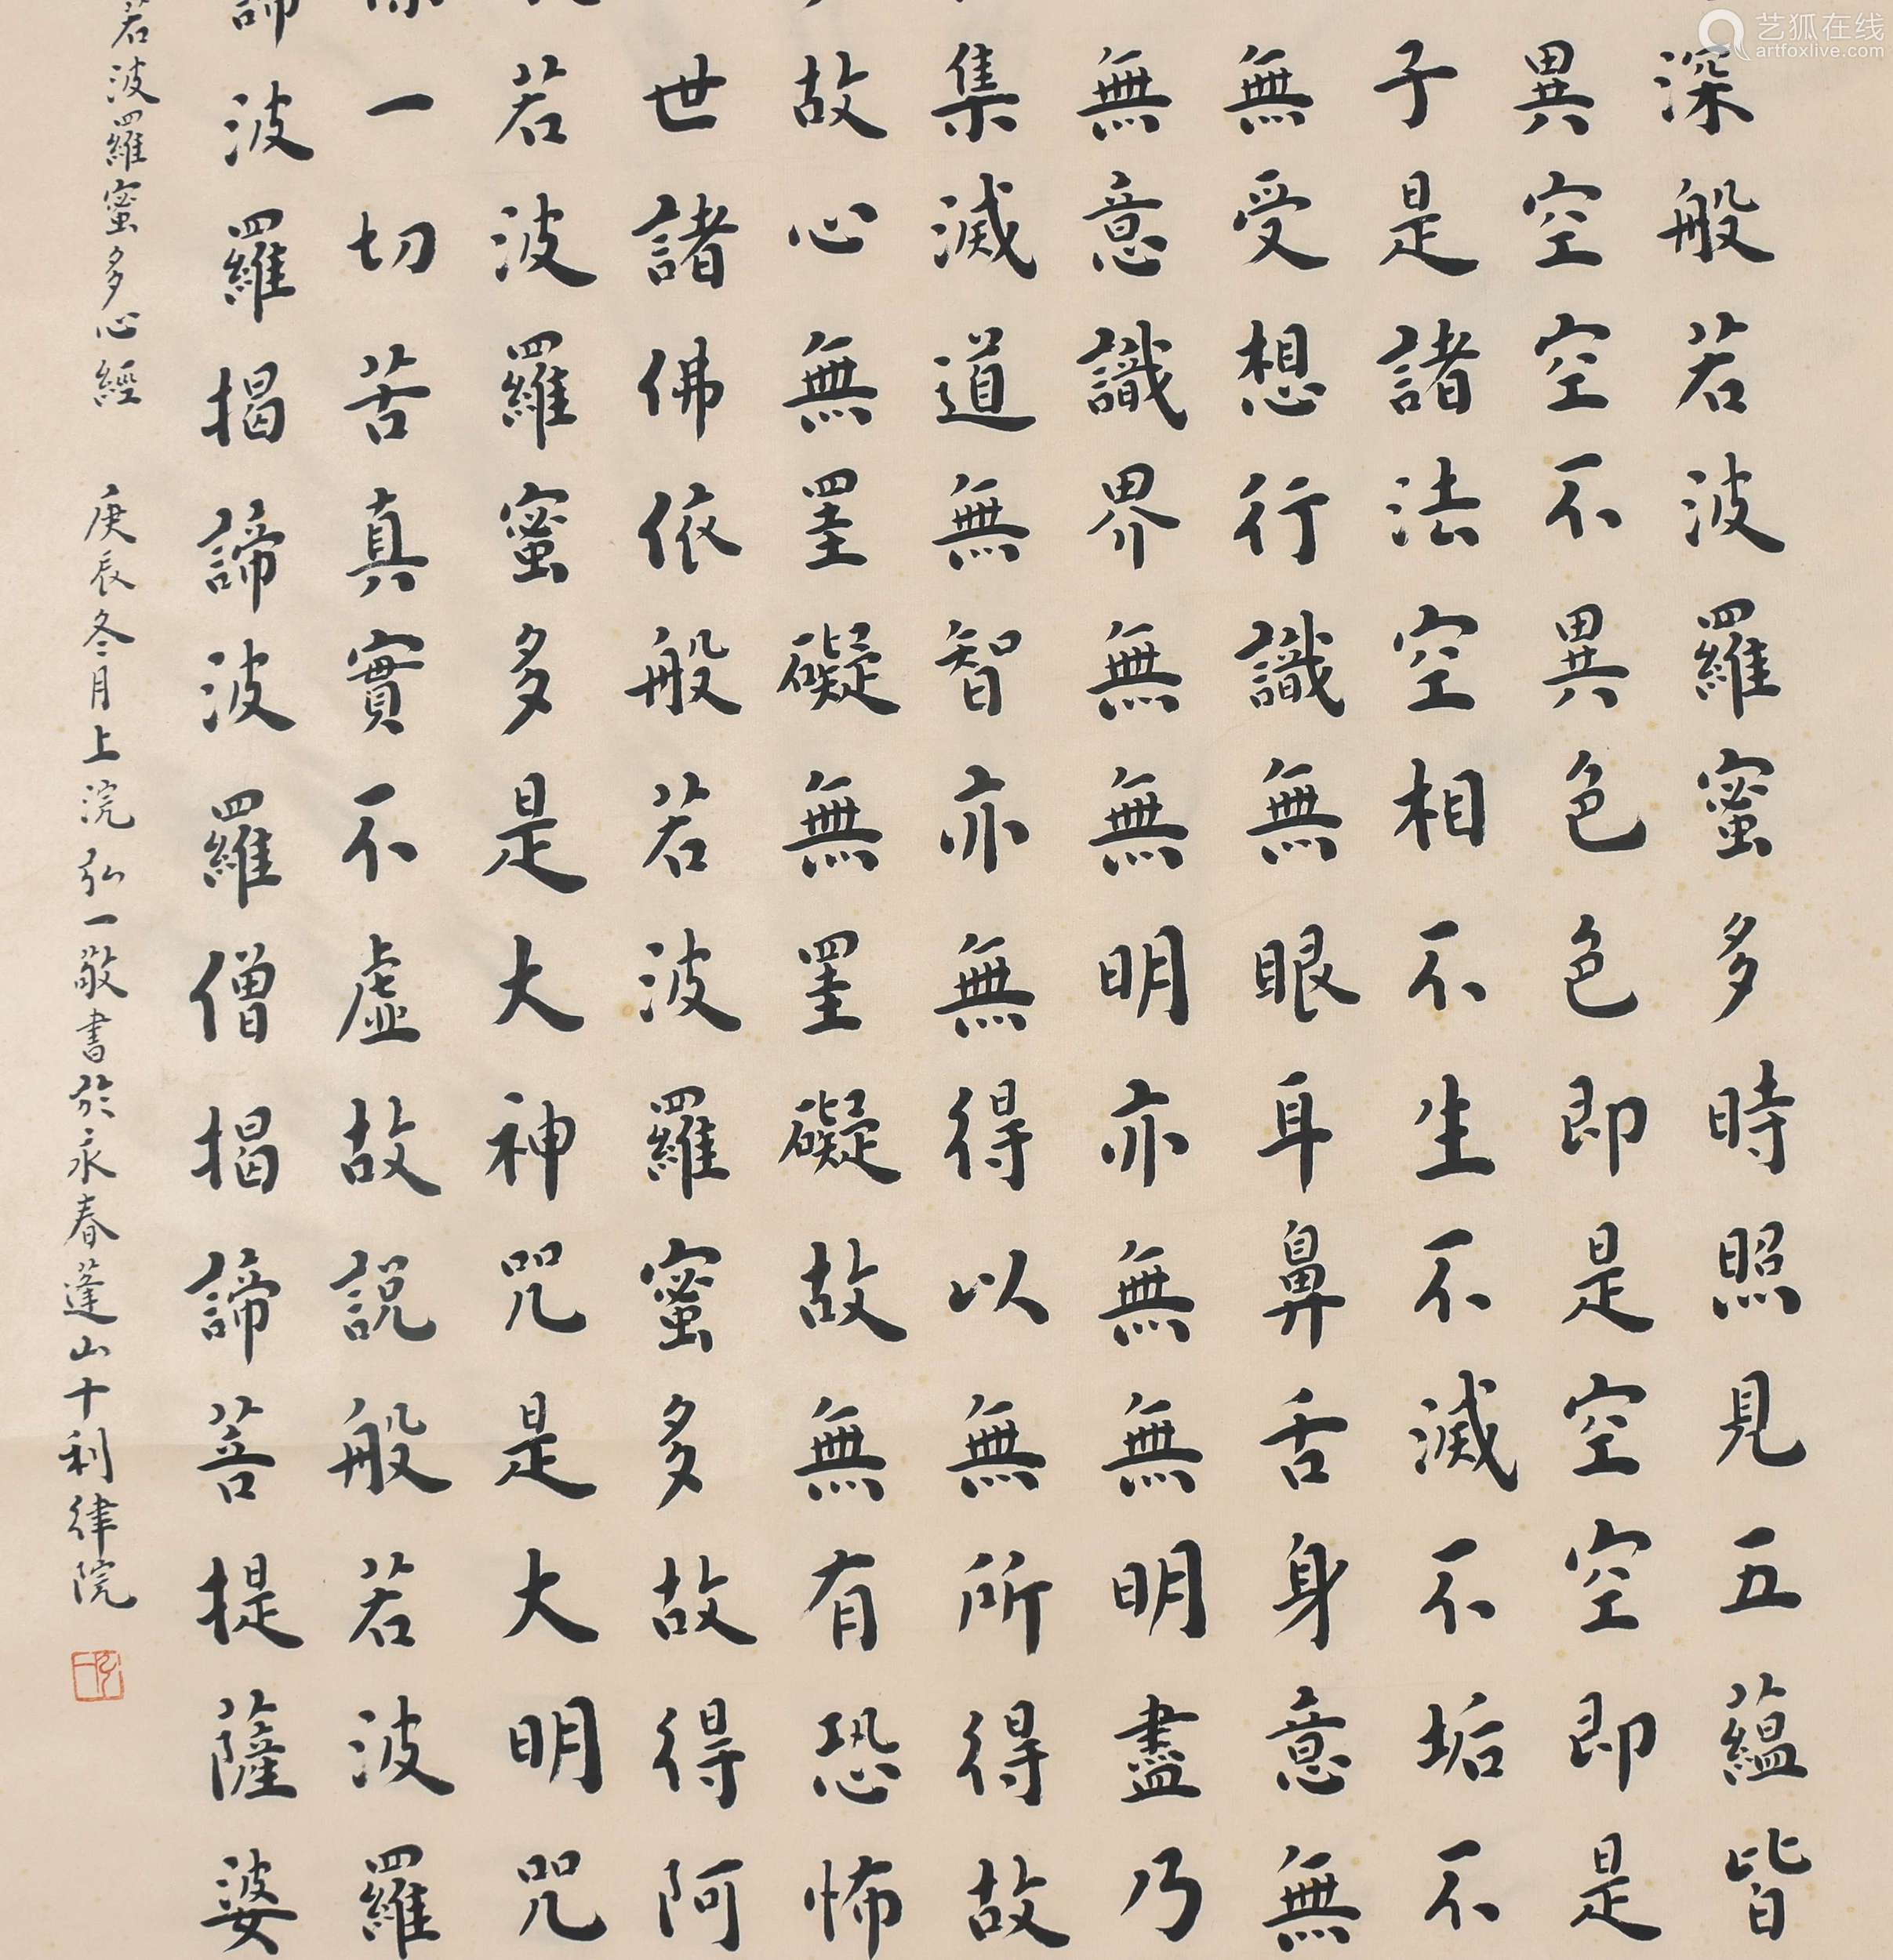 深般若波羅蜜多時照見五蘊皆
異空空不異色色即是空空即是
子是諸法空相不生不滅不垢不
無受想行識無眼耳鼻舌身意無
無意識界無無明亦無無明盡乃
集滅道無智亦無得以無所得故
故心無罣礙無罣礙故無有恐怖
世諸佛依般若波羅蜜多故得阿
若波羅蜜多是大神咒是大明咒
一切苦真實不虛故說般若波羅
諦波羅揭諦波羅僧揭諦菩提薩婆
若波羅蜜多心經 庚辰冬月上浣弘一敬書於永春蓬山十利律院
艺狐在线
artfoxlive.com